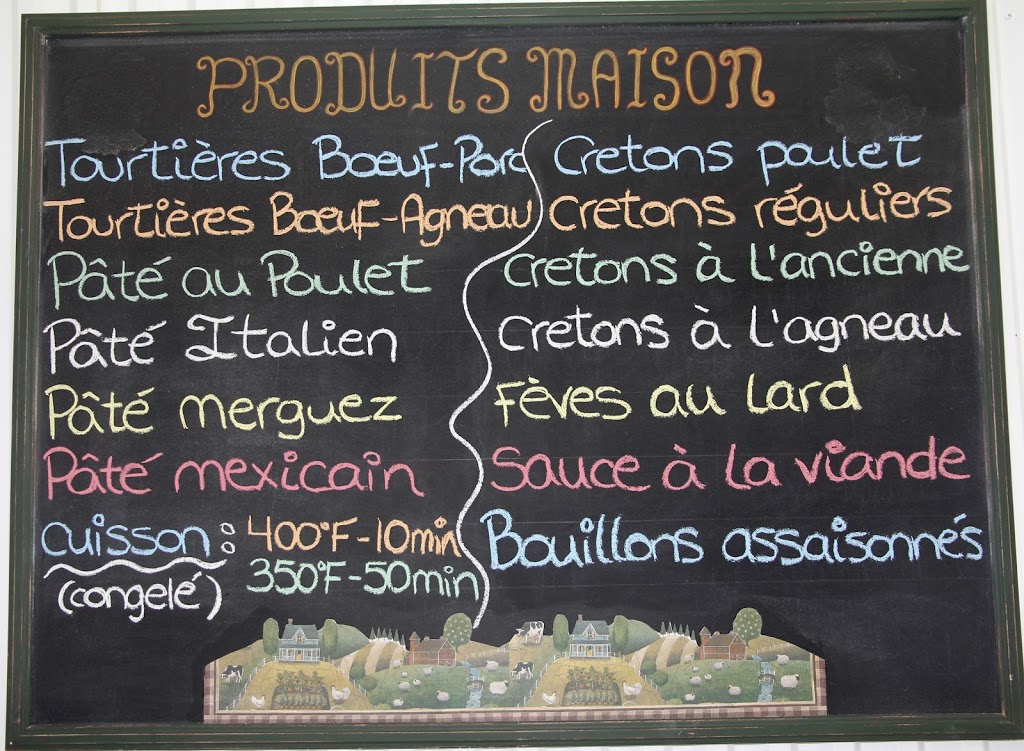 PRODUITS MAISON
Tourtières Boeuf-Porc
Tourtières Boeuf-Agneau
Pâté au Poulet
Pâté Italien
Pâté merguez
Pâté mexicain
Cuisson : 400°F-10min
(congelé) 350°F-50min
Cretons poulet
Cretons réguliers
Cretons à l'ancienne
Cretons à l'agneau
Fèves au lard
Sauce à la viande
Bouillons assaisonnés